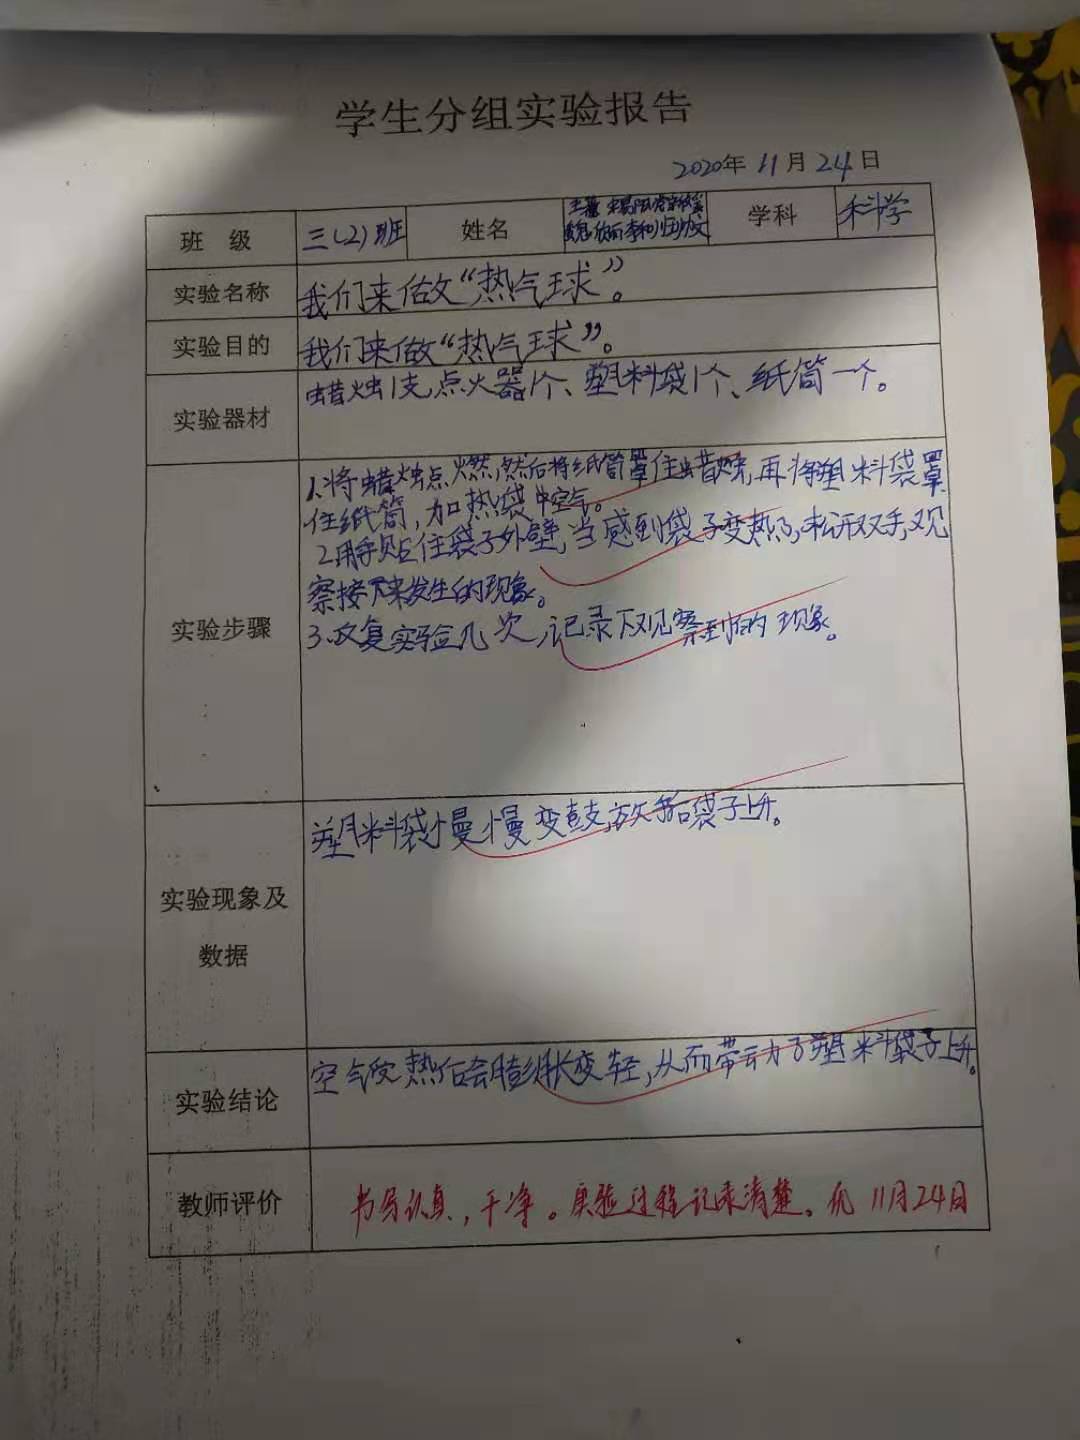 学生分组实验报告
2020年 11月 24日
班 级 三(2)班 姓名 学科 科学
实验名称 我们来做“热气球”。
实验目的 我们来做“热气球”。
实验器材 蜡烛1支,点火器1个、塑料袋1个、纸筒一个。
实验步骤
1.将蜡烛点燃,然后将纸筒罩住蜡烛,再将塑料袋罩
住纸筒,加热袋中空气。
2.用手贴住袋子外壁,当感到袋子变热了,松开双手,观
察接下来发生的现象。
3.反复实验几次,记录下观察到的现象。
实验现象及
数据
塑料袋慢慢变鼓,放手后袋子上升。
实验结论 空气受热后会膨胀变轻,从而带动了塑料袋子上升。
教师评价 书写认真,干净。实验过程记录清楚。优 11月24日